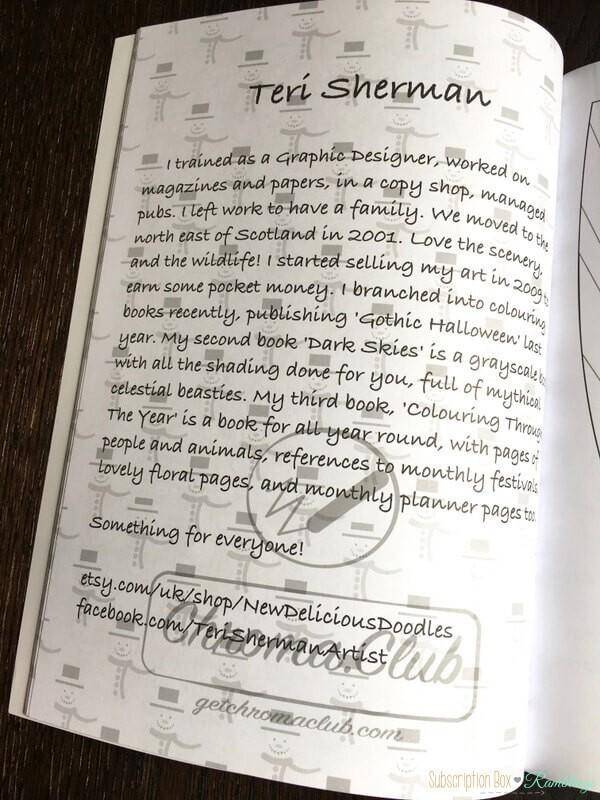 Teri Sherman
I trained as a Graphic Designer, worked on
magazines and papers, in a copy shop, managed
pubs. I left work to have a family. We moved to the
north east of Scotland in 2001. Love the scenery,
and the wildlife! I started selling my art in 2009 to
earn some pocket money. I branched into colouring
books recently, publishing 'Gothic Halloween' last
year. My second book 'Dark Skies' is a grayscale
with all the shading done for you, full of mythical
celestial beasties. My third book, 'Colouring Through
The Year' is a book for all year round, with pages of
people and animals, references to monthly festivals
lovely floral pages, and monthly planner pages too.
Something for everyone!
etsy.com/uk/shop/NewDeliciousDoodles
facebook.com/TeriShermanArtist
Chroma.Club
getchromaclub.com
Subscription Box Ramblings